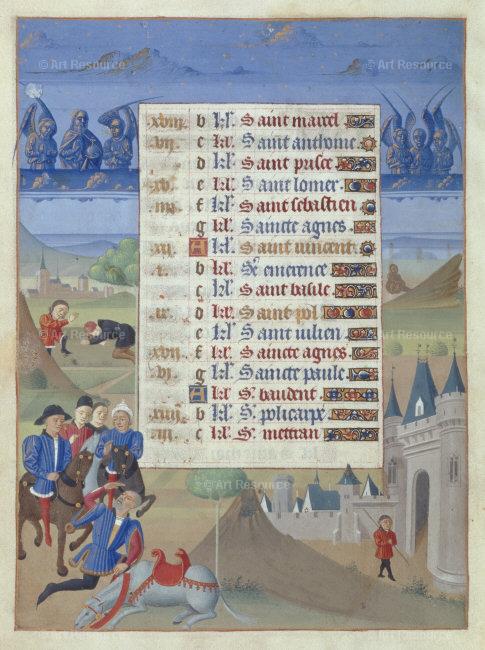 © Art Resource © Art Resource © Art Resource
xviii b kl' Saint marcel
vii c kl' Saint anthoine
d kl' Saint prisce
xv e kl' Saint lomer
iiii f kl' Saint sebastien
g kl' Saincte agnes
A kl' Saint vincent
i b kl' Ste emerence
c kl' Saint basile
ix d kl' Saint pol
e kl' Saint iulien
xvii f kl' Saincte agnes
vi g kl' Saincte paule
A kl' S. baudent
xiiii b kl' S. policarpe
iii c kl' S. mettran